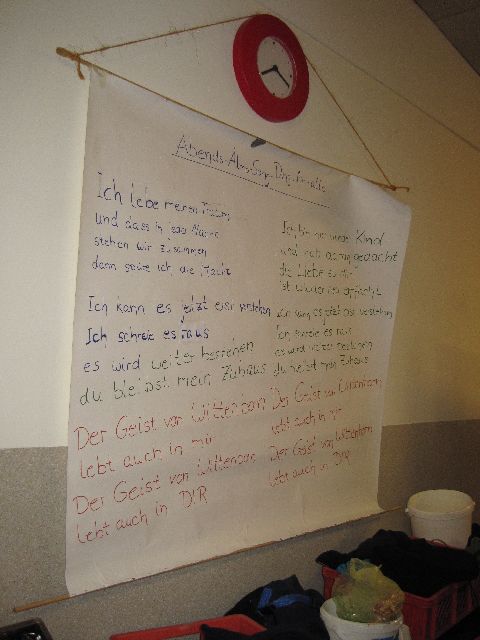 Ich lebe meinen Traum
und dass in jeder
stehen wir zusammen
dann spüre ich die
Ich kann es jetzt erst verstehen
Ich schreie es raus
es wird weiter bestehen
du bleibst mein Zuhaus
Der Geist von Wittenborn
lebt auch in mir
Der Geist von Wittenborn
lebt auch in DIR
Ich bin nur Kind
und hab
die Liebe
ist wieder
Ich kann es jetzt erst verstehen
Ich schreie es raus
es wird weiter bestehen
du bleibst mein Zuhaus
Der Geist von Wittenborn
lebt auch in mir
Der Geist von Wittenborn
lebt auch in DIR